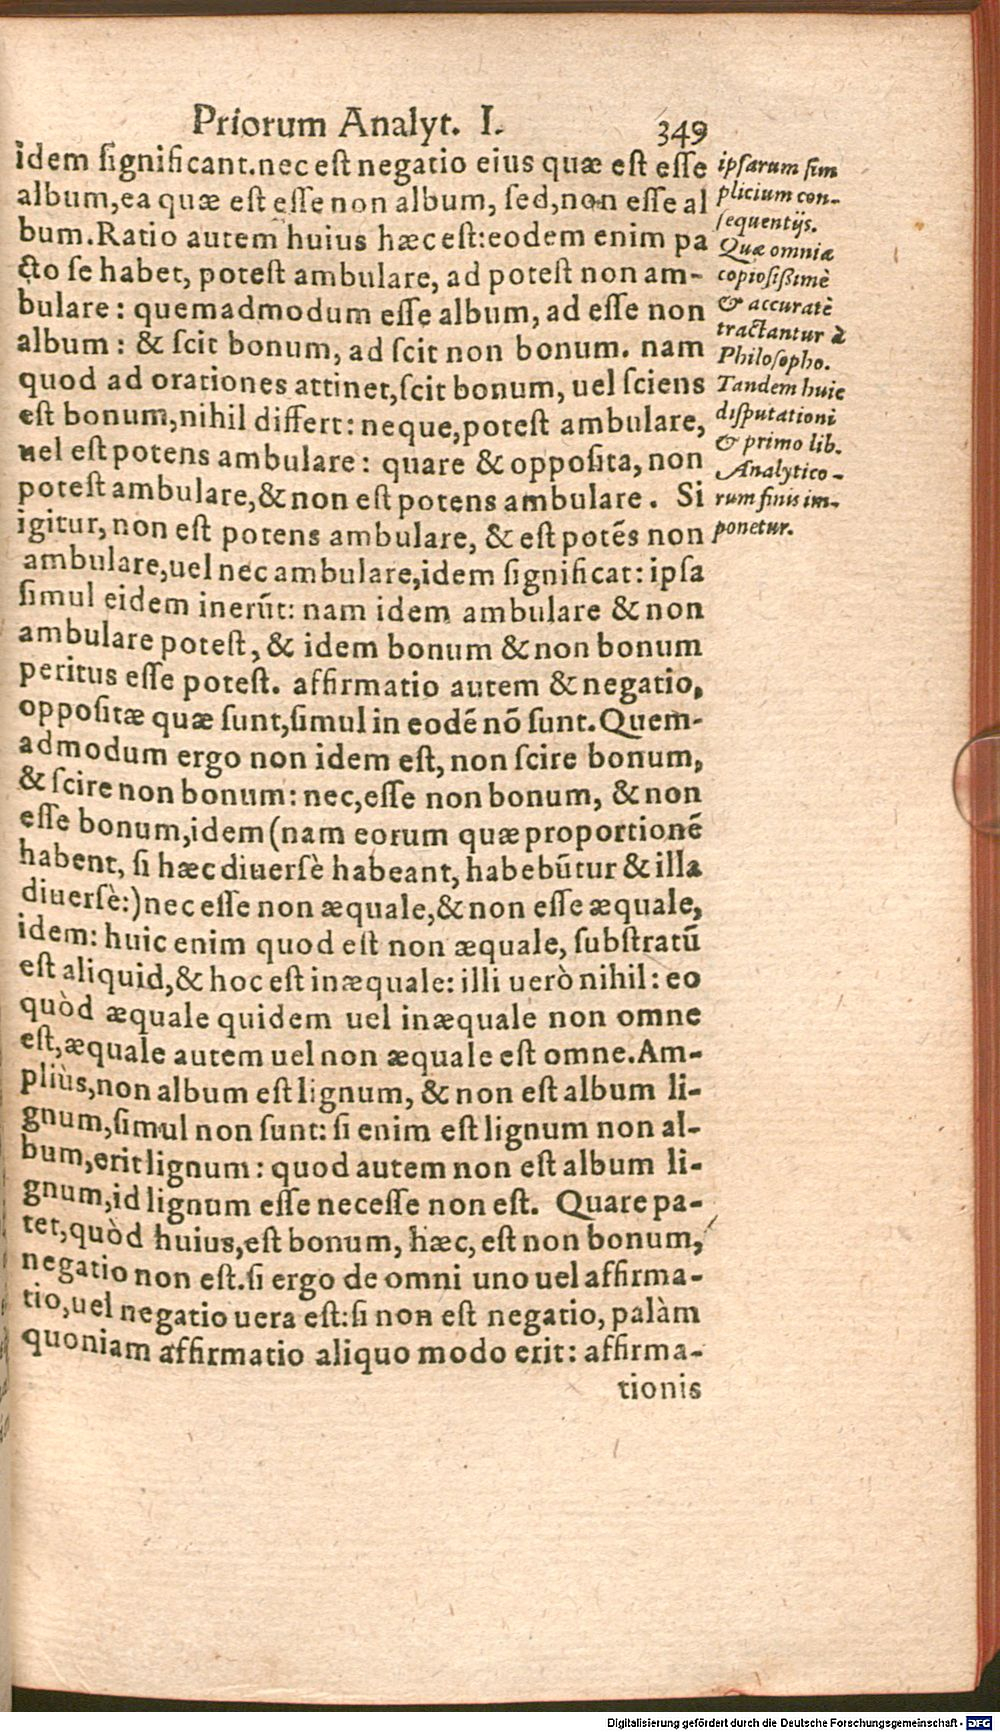 Priorum Analyt. I. 349
idem ſignificant.nec eſt negatio eius quæ eſt eſſe
album,ea quæ eſt eſſe non album, ſed,non eſſe al
bum.Ratio autem huius hæc eſt:eodem enim pa
cto ſe habet, poteſt ambulare, ad poteſt non am-
bulare: quemadmodum eſſe album, ad eſſe non
album: & ſcit bonum, ad ſcit non bonum. nam
quod ad orationes attinet,ſcit bonum, uel ſciens
eſt bonum,nihil differt: neque,poteſt ambulare,
uel eſt potens ambulare: quare & oppoſita, non
poteſt ambulare,& non eſt potens ambulare. Si
igitur, non eſt potens ambulare, & eſt potẽs non
ambulare,uel nec ambulare,idem ſignificat: ipſa
ſimul eidem inerũt: nam idem ambulare & non
ambulare poteſt, & idem bonum & non bonum
peritus eſſe poteſt. affirmatio autem & negatio,
oppoſitæ quæ ſunt,ſimul in eodẽ nõ ſunt.Quem-
admodum ergo non idem eſt, non ſcire bonum,
& ſcire non bonum: nec,eſſe non bonum, & non
eſſe bonum,idem (nam eorum quæ proportionẽ
habent, ſi hæc diuerſè habeant, habebũtur & illa
diuerſè:) nec eſſe non æquale,& non eſſe æquale,
idem: huic enim quod eſt non æquale, ſubſtratũ
eſt aliquid,& hoc eſt inæquale: illi uerò nihil: eo
quòd æquale quidem uel inæquale non omne
eſt,æquale autem uel non æquale eſt omne.Am-
pliùs,non album eſt lignum, & non eſt album li-
gnum,ſimul non ſunt: ſi enim eſt lignum non al-
bum,erit lignum: quod autem non eſt album li-
gnum,id lignum eſſe neceſſe non eſt. Quare pa-
tet,quòd huius,eſt bonum, hæc, eſt non bonum,
negatio non eſt.ſi ergo de omni uno uel affirma-
tio,uel negatio uera eſt:ſi non eſt negatio, palàm
quoniam affirmatio aliquo modo erit: affirma-
tionis
ipſarum ſim
plicium con-
ſequentijs.
Quæ omnia
copioſißimè
& accuratè
tractantur à
Philoſopho.
Tandem huic
diſputationi
& primo lib.
Analytico-
rum finis im-
ponetur.
Digitalisierung gefördert durch die Deutsche Forschungsgemeinschaft - DFG